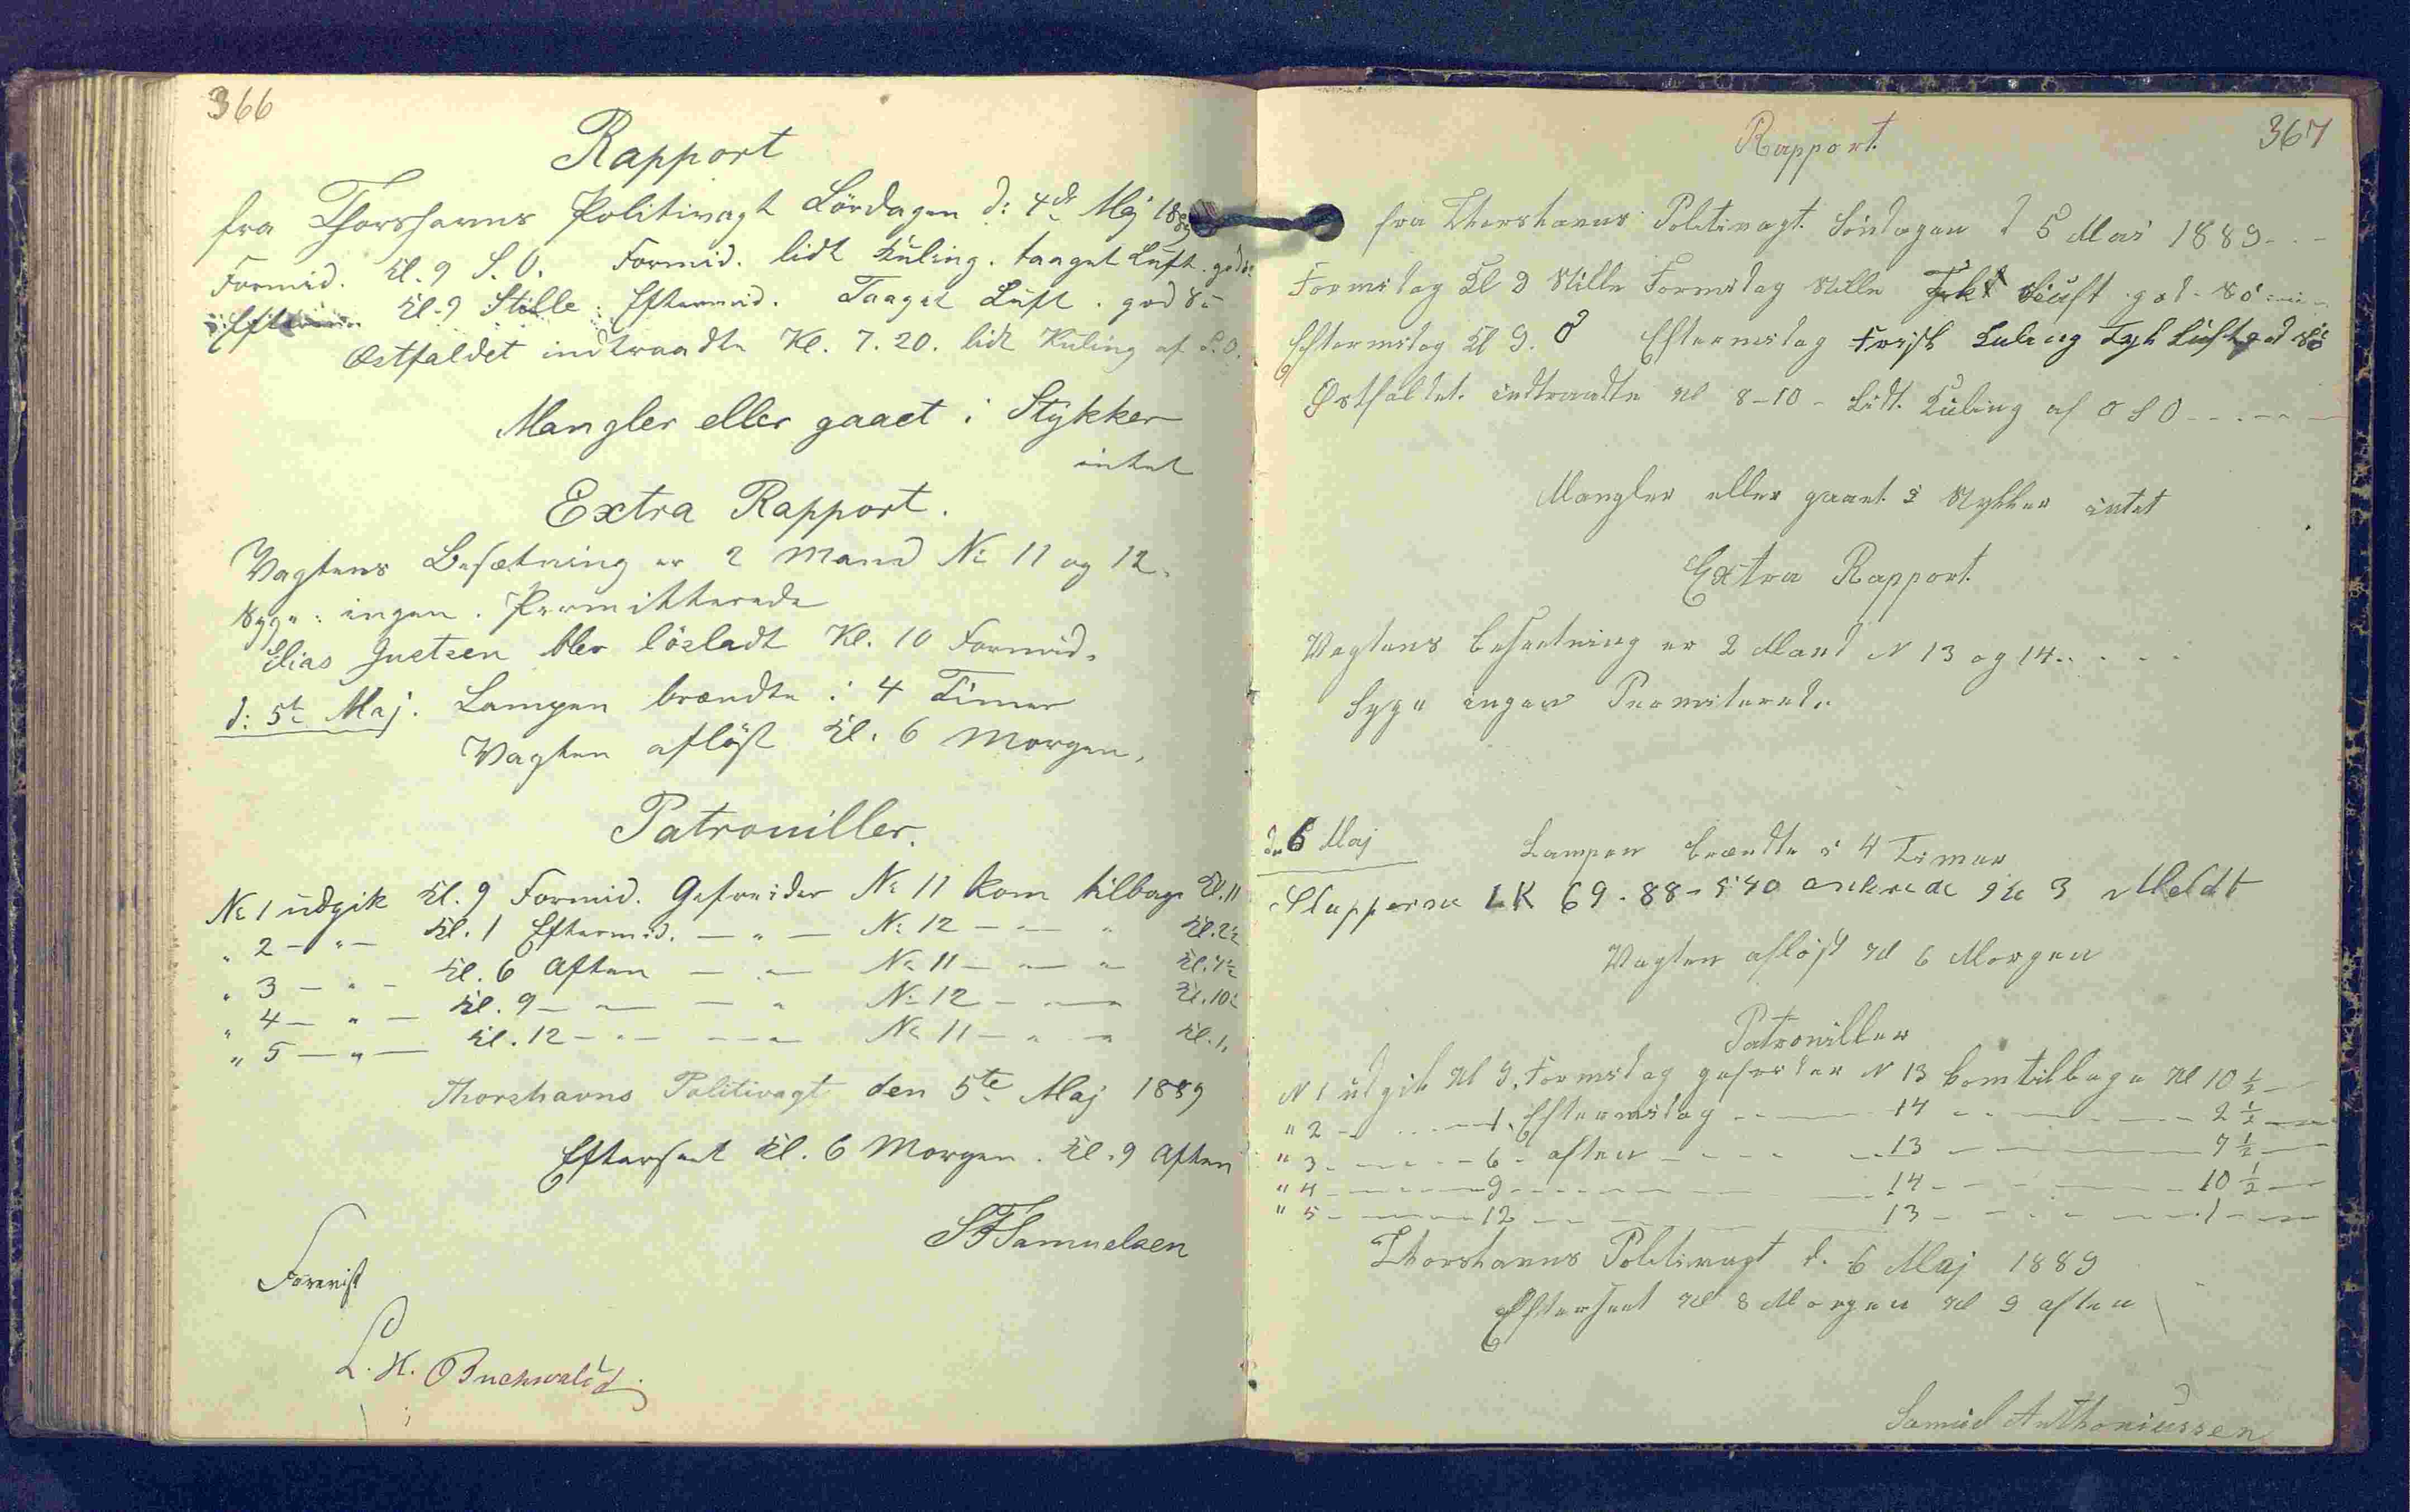 366
Rapport
fra Thorshavns Politivagt Lördagen d: 4de Maj 1889
Formid. Kl. 9 S.O. Formid. lidt Kuling. taaget Luft. god
Kl. 9 Stille. Eftermid. Taaget Luft. god Sö
Østfaldet indtraadte Kl. 7.20. lidt Kuling af S.O.
Mangler eller gaaet i Stykker
intet
Extra Rapport.
Vagtens Besætning er 2 Mand No 11 og 12.
Syge: ingen. Permitterede
Elias Joensen blev lösladt Kl. 10 Formid.
d: 5te Maj. Lampen brændte i 4 Timer
Vagten aflöst Kl. 6 Morgen.
Patrouiller.
No 1 udgik Kl. 9 Formid. Gefreider No 11 kom tilbage Kl. 11
" 2 — " — Kl. 1 Eftermid. — " — No 12 — — " Kl. 2½
" 3 — " — Kl. 6 Aften — — No 11 — — " Kl. 7½
" 4 — " — Kl. 9 — — — " No 12 — — Kl. 10½
" 5 — " — Kl. 12 — — — No 11 — " — Kl. 1.
Thorshavns Politivagt den 5te Maj 1889
Efterseet Kl. 6 Morgen. Kl. 9 Aften
Samuelsen
Forevist
L. H. Buchwaldt
367
Rapport.
fra Thorshavns Politivagt. Söndagen d 5 Mai 1889 - - -
Formidag Kl 9 Stille Formidag Stille Luft god Sö
Eftermidag Kl 9. O Eftermidag Frisk Kuling Tyk Luft god Sö
Østfaldet. indtraadte Kl 8-10 - Lidt. Kuling af O S O - - - -
Mangler eller gaaet i Stykker intet
Extra Rapport.
Vagtens Besætning er 2 Mand N 13 og 14. . . .
Syge ingen Permiteret..
d. 6 Maj Lampen brændte i 4 Timer
Slupperne LK 69. 88- 3 Meldt
Vagten aflöst Kl 6 Morgen
Patrouiller
N 1 udgik Kl 9. Formidag gefreider N 13 kom tilbage Kl 10 ½ —
" 2 - - - - 1. Eftermidag - - — 14 - - — - — 2 ½ —
" 3 - - - - 6 - aften - - - - 13 — — 7 ½ —
" 4 - - - - 9 - - - - - 14 - - - — 10 ½ —
" 5 - — - 12 - - - — 13 - - - - - 1 - —
Thorshavns Politivagt d. 6 Maj 1889
Efterseet Kl 8 Morgen Kl 9 aften
Samuel Anthoniussen